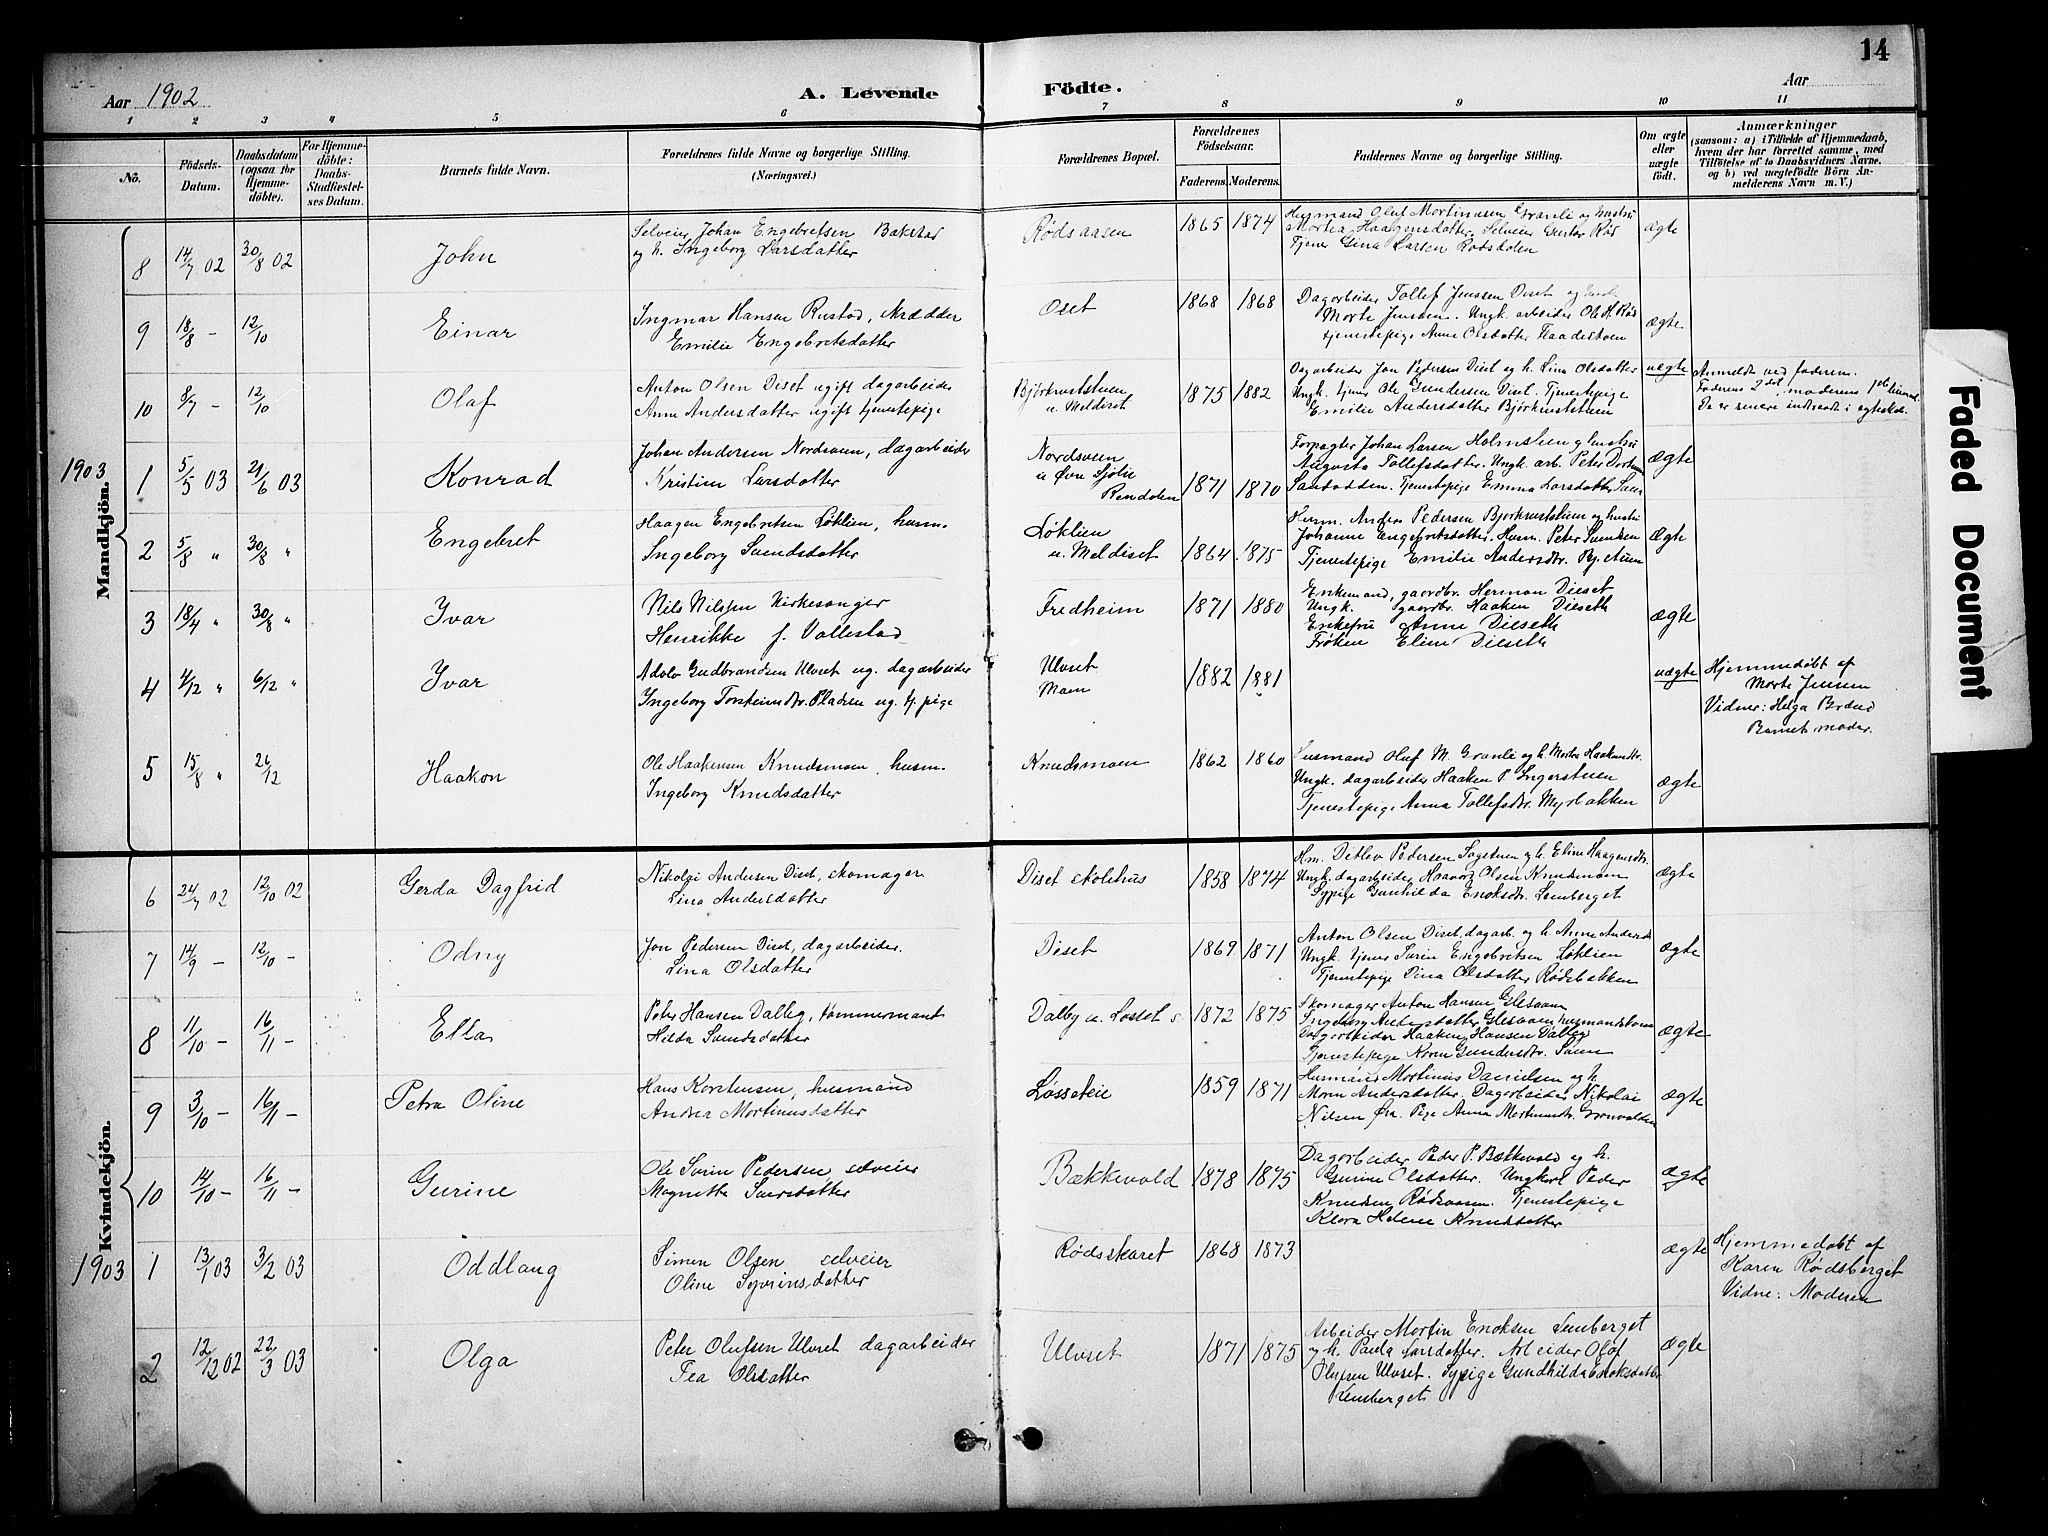 14
Aar 1902
A. Levende Födte.
Aar
1 2 3 4 5 6 7 8 9 10 11
No.
Födsels-Datum.
Daabsdatum (ogsaa for Hjemme-döbte).
For Hjemme-döbte: Daabs-Stadfæstel-ses Datum.
Barnets fulde Navn.
Forældrenes fulde Navne og borgerlige Stilling.
(Næringsvei.)
Forældrenes Bopæl.
Forældrenes Födselsaar.
Faderens. Moderens.
Faddernes Navne og borgerlige Stilling.
Om ægte eller uægte födt.
Anmærkninger
(saasom: a) i Tilfælde af Hjemmedaab,
hvem der har forrettet samme, med
Tilföielse af to Daabsvidners Navne,
og b) ved uægtefödte Börn An-
melderens Navn m. V.)
Mandkjön.
8 14/7 02 30/8 02 John
Selveier Johan Engebretsen Bakstad
og h. Ingeborg Larsdatter
Rødsaasen 1865 1874
Husmand Oluf Mortinusen Granli og hustru
Martea Haagensdatter. Selveier Rød
Tjener Gina Larsen Rødsdalen
ægte
9 18/8 - 12/10 Einar
Ingmar Hansen Rustad, skrædder
Emilie Engebretsdatter
Oset 1868 1868
Dagarbeider Tollef Jenssen Diset og
Marte Jenssen. Ungk. arbeider Ole H. Rød
tjenestepige Anne Olsdatter
ægte
10 8/7 - 12/10 Olaf
Anton Olsen Diset ugift dagarbeider
Anne Andersdatter ugift tjenestepige
Bjørknststuen
u. Meldiset 1875 1882
Dagarbeider Jon Pedersen Diset og h. Lina Olsdatter
Ungk. tjener Ole Gundersen Diset. Tjenestepige
Emilie Andersdatter
uægte
Anmeldt ved faderen.
Faderens 2det, moderens 1ste
De er senere indtraadt i egteskab.
1903
1 5/5 03 21/6 03 Konrad
Johan Andersen Nordsveen, dagarbeider
Kristine Larsdatter
Nordsveen
u Øvre Sjølie
Rendalen 1871 1870
Forpagter Johan Larsen Holmstuen og hustru
Augusta Tollefsdatter. Ungk. arb. Peter
Tjenestepige Emma Larsdatter
ægte
2 5/8 " 30/8 " Engebret
Haagen Engebretsen Løklien, husm.
Ingeborg Svendsdatter
Løklien
u. Meldiset 1864 1875
Husm. Anders Pedersen og hustru
Johanne Engebretsdatter. Husm. Peter
Tjenestepige Emilie Andersdtr.
Ægte
3 18/4 " 30/8 " Yvar
Nils Nilssen Kirkesanger
Henrikke f. Vallestad
Fredheim 1871 1880
Enkemand, gaardbr. Herman Dieset
Ungk. gaardbr. Haaken Dieseth
Enkefru Anne Dieseth
Frøken Eline Dieseth
ægte
4 4/12 " 6/12 " Yvar
Adolv Gudbrandsen Ulvset ug. dagarbeider
Ingeborg Torsteinsdtr. Pladsen ug. tj. pige
Ulvset
Moen 1882 1881
uægte
Hjemmedøbt af
Marte Jensen
Vidner: Helga
Barnets moder.
5 15/8 " 26/12 Haakon
Ole Haakensen Knudsmoen, husm.
Ingeborg Knudsdatter
Knudsmoen 1862 1860
Husmand Oluf M. Granli og h. Martea Haakensdtr.
Ungk. dagarbeider Haaken P. Ingerstuen
Tjenestepige Anna Tollefsdtr. Myrbakken
ægte
Kvindekjön.
6 24/7 02 12/10 02 Gerda Dagfrid
Nikolai Andersen Diset, skomager
Lina Andersdatter
Diset skolehus 1858 1874
Hm. Ditlev Pedersen Sagstuen og h. Eline Haagensdtr.
Ungk. dagarbeider Haavard Olsen Knudsmoen
Sypige Gunhilda Enoksdtr. Lemberget
ægte
7 14/9 - 12/10 - Odny
Jon Pedersen Diset, dagarbeider.
Lina Olsdatter
Diset 1869 1871
Anton Olsen Diset, dagarb. og h. Anne Andersdtr
Ungk. tjener Søren Engebretsen Løklien
Tjenestepige Dina Olsdatter Rødsbakken
ægte
8 11/10 - 16/11 - Ella
Peter Hansen Dalby, tømmermand
Hilda Svendsdatter
Dalby u. Losset 1872 1875
Skomager Anton Hansen Glesaaen
Ingeborg Andersdatter Glesaaen husmandskone
Dagarbeider Haaken Hansen Dalby
Tjenestepige Karen Gundersdtr.
ægte
9 3/10 - 16/11 - Petra Oline
Hans Karstensen, husmand
Andrea Mortinusdatter
Løsseteie 1859 1871
Husmand Mortinus Danielsen og h.
Maren Andersdatter. Dagarbeider Nikolai
Nilsen Øra. Pige Anna Mortinusdtr.
ægte
10 14/10 - 16/11 - Gurine
Ole Sørin Pedersen selveier
Magnetta Swersdatter
Bækkevold 1878 1875
Dagarbeider Peder P. Bækkevold og h.
Gurine Olsdatter. Ungkarl Peder
Knudsen Rødsaasen. Tjenestepige
Klara Helene Knudsdatter
ægte
1903
1 13/1 03 3/2 03 Oddlaug
Simen Olsen selveier
Oline Syverinsdatter
Rødsskaret 1868 1873
ægte
Hjemmedøbt af
Karen Rødsberget
Vidne: Moderen
2 12/12 02 22/3 03 Olga
Peter Olufsen Ulvset dagarbeider
Tea Olsdatter
Ulvset 1871 1875
Arbeider Martin Enoksen Lemberget
og h. Paula Larsdatter. Arbeider Olof
Olufsen Ulvset. Sypige Gundhilda Enoksdatter
Lemberget
ægte
Faded Document